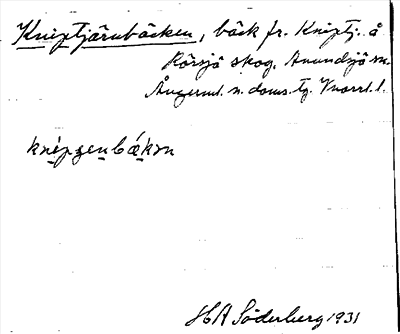 Kniptjärnbäcken, bäck fr. Kniptj. å
Rörsjö skog. Anundsjö sn.
Ångerml. n. doms. tg. Vnorrl. l.
knipʒenbǽkɜn
HA Söderberg 1931